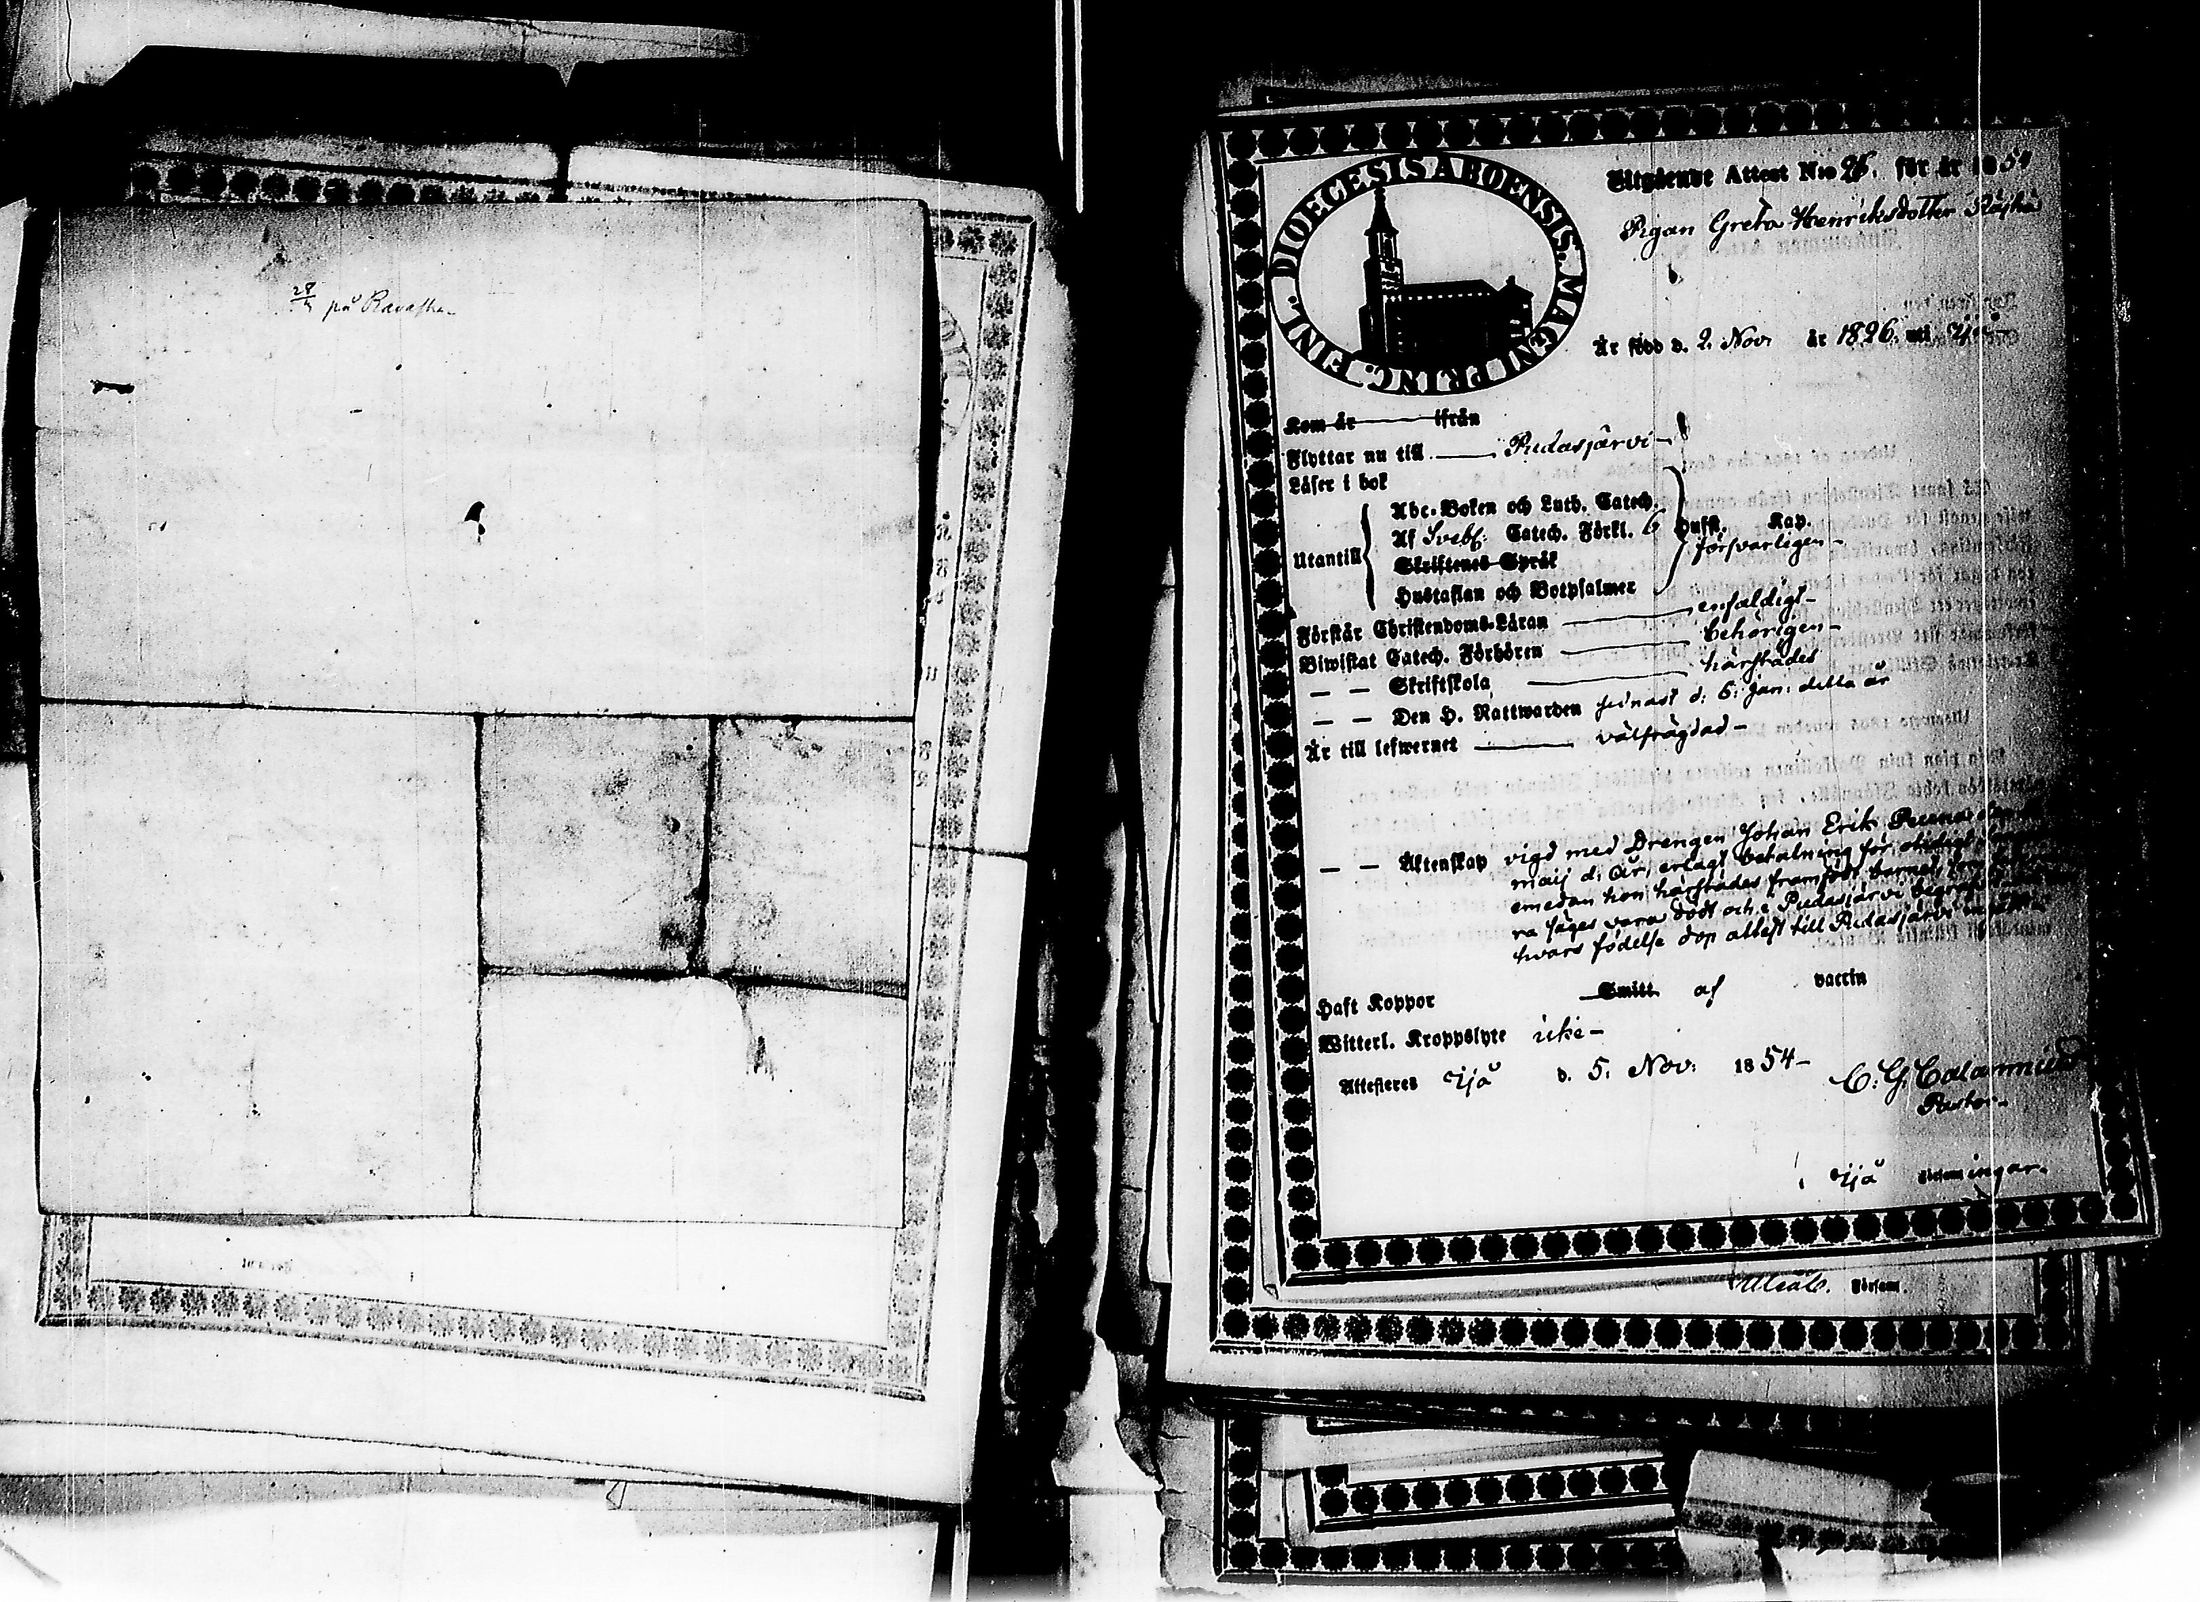 28/4 på Ravaska
DIOECESIS ABOENSIS. MAGNI PRINC. FINL.
Utgående Attest N:o 26. för år 1854
Pigan Greta Henriksdotter
Är född d. 2. Nov. år 1826. uti Ijå
Kom år ifrån
Flyttar nu till Pudasjärvi
Läser i bok
Abc-Boken och Luth. Catech.
Utantill Af Svebil. Catech. Förkl. 6 Husst. Kap.
försvarligen
Skriftenes Språk
Hustaflan och Botpsalmer
Förstår Christendoms-Läran enfaldigt
Biwistat Catech. Förhören behörigen
— — Skriftskola härstädes
— — Den H. Nattwarden senast d: 6: Jan: detta år
Är till lefwernet välfrägdad
— — Äktenskap vigd med Drengen Johan Erik
maij d. år, erlagt betalning för otidigt
emedan hon härstädes framfödt barnet, som
ra säges vara dödt och i Pudasjärvi
hvars födelse dop attest till Pudasjärvi
Haft Koppor Smitt af vaccin
Witterl. Kroppslyte icke
Attesteras Ijå d. 5. Nov: 1854
C. G. Calamnius
Pastor
Ijå Församlingar.
Uleåb. Försam.